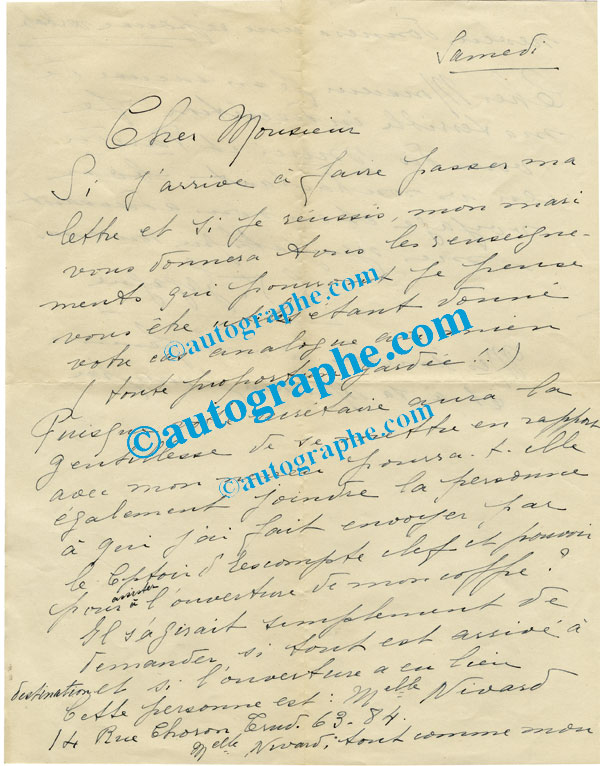 Samedi
Cher Monsieur
Si j'arrive à faire passer ma
lettre et si je reussis, mon mari
vous donnera tous les renseigne-
ments qui pourront je pense
vous être étant donné
votre cas analogue au mien
(toute proportion gardée!!)
Puisque secrétaire aura la
gentillesse de se mettre en rapport
avec mon pourra-t-elle
également joindre la personne
à qui j'ai fait envoyer par
le Cptoir d'Escompte clef et pouvoir
pour assister à l'ouverture de mon coffre?
Il s'agirait simplement de
demander si tout est arrivé à
destination et si l'ouverture a eu lieu
Cette personne est: Melle Nivard
14 Rue Choron Trud. 63-84.
Melle Nivard, tout comme mon
©autographe.com
©autographe.com
©autographe.com